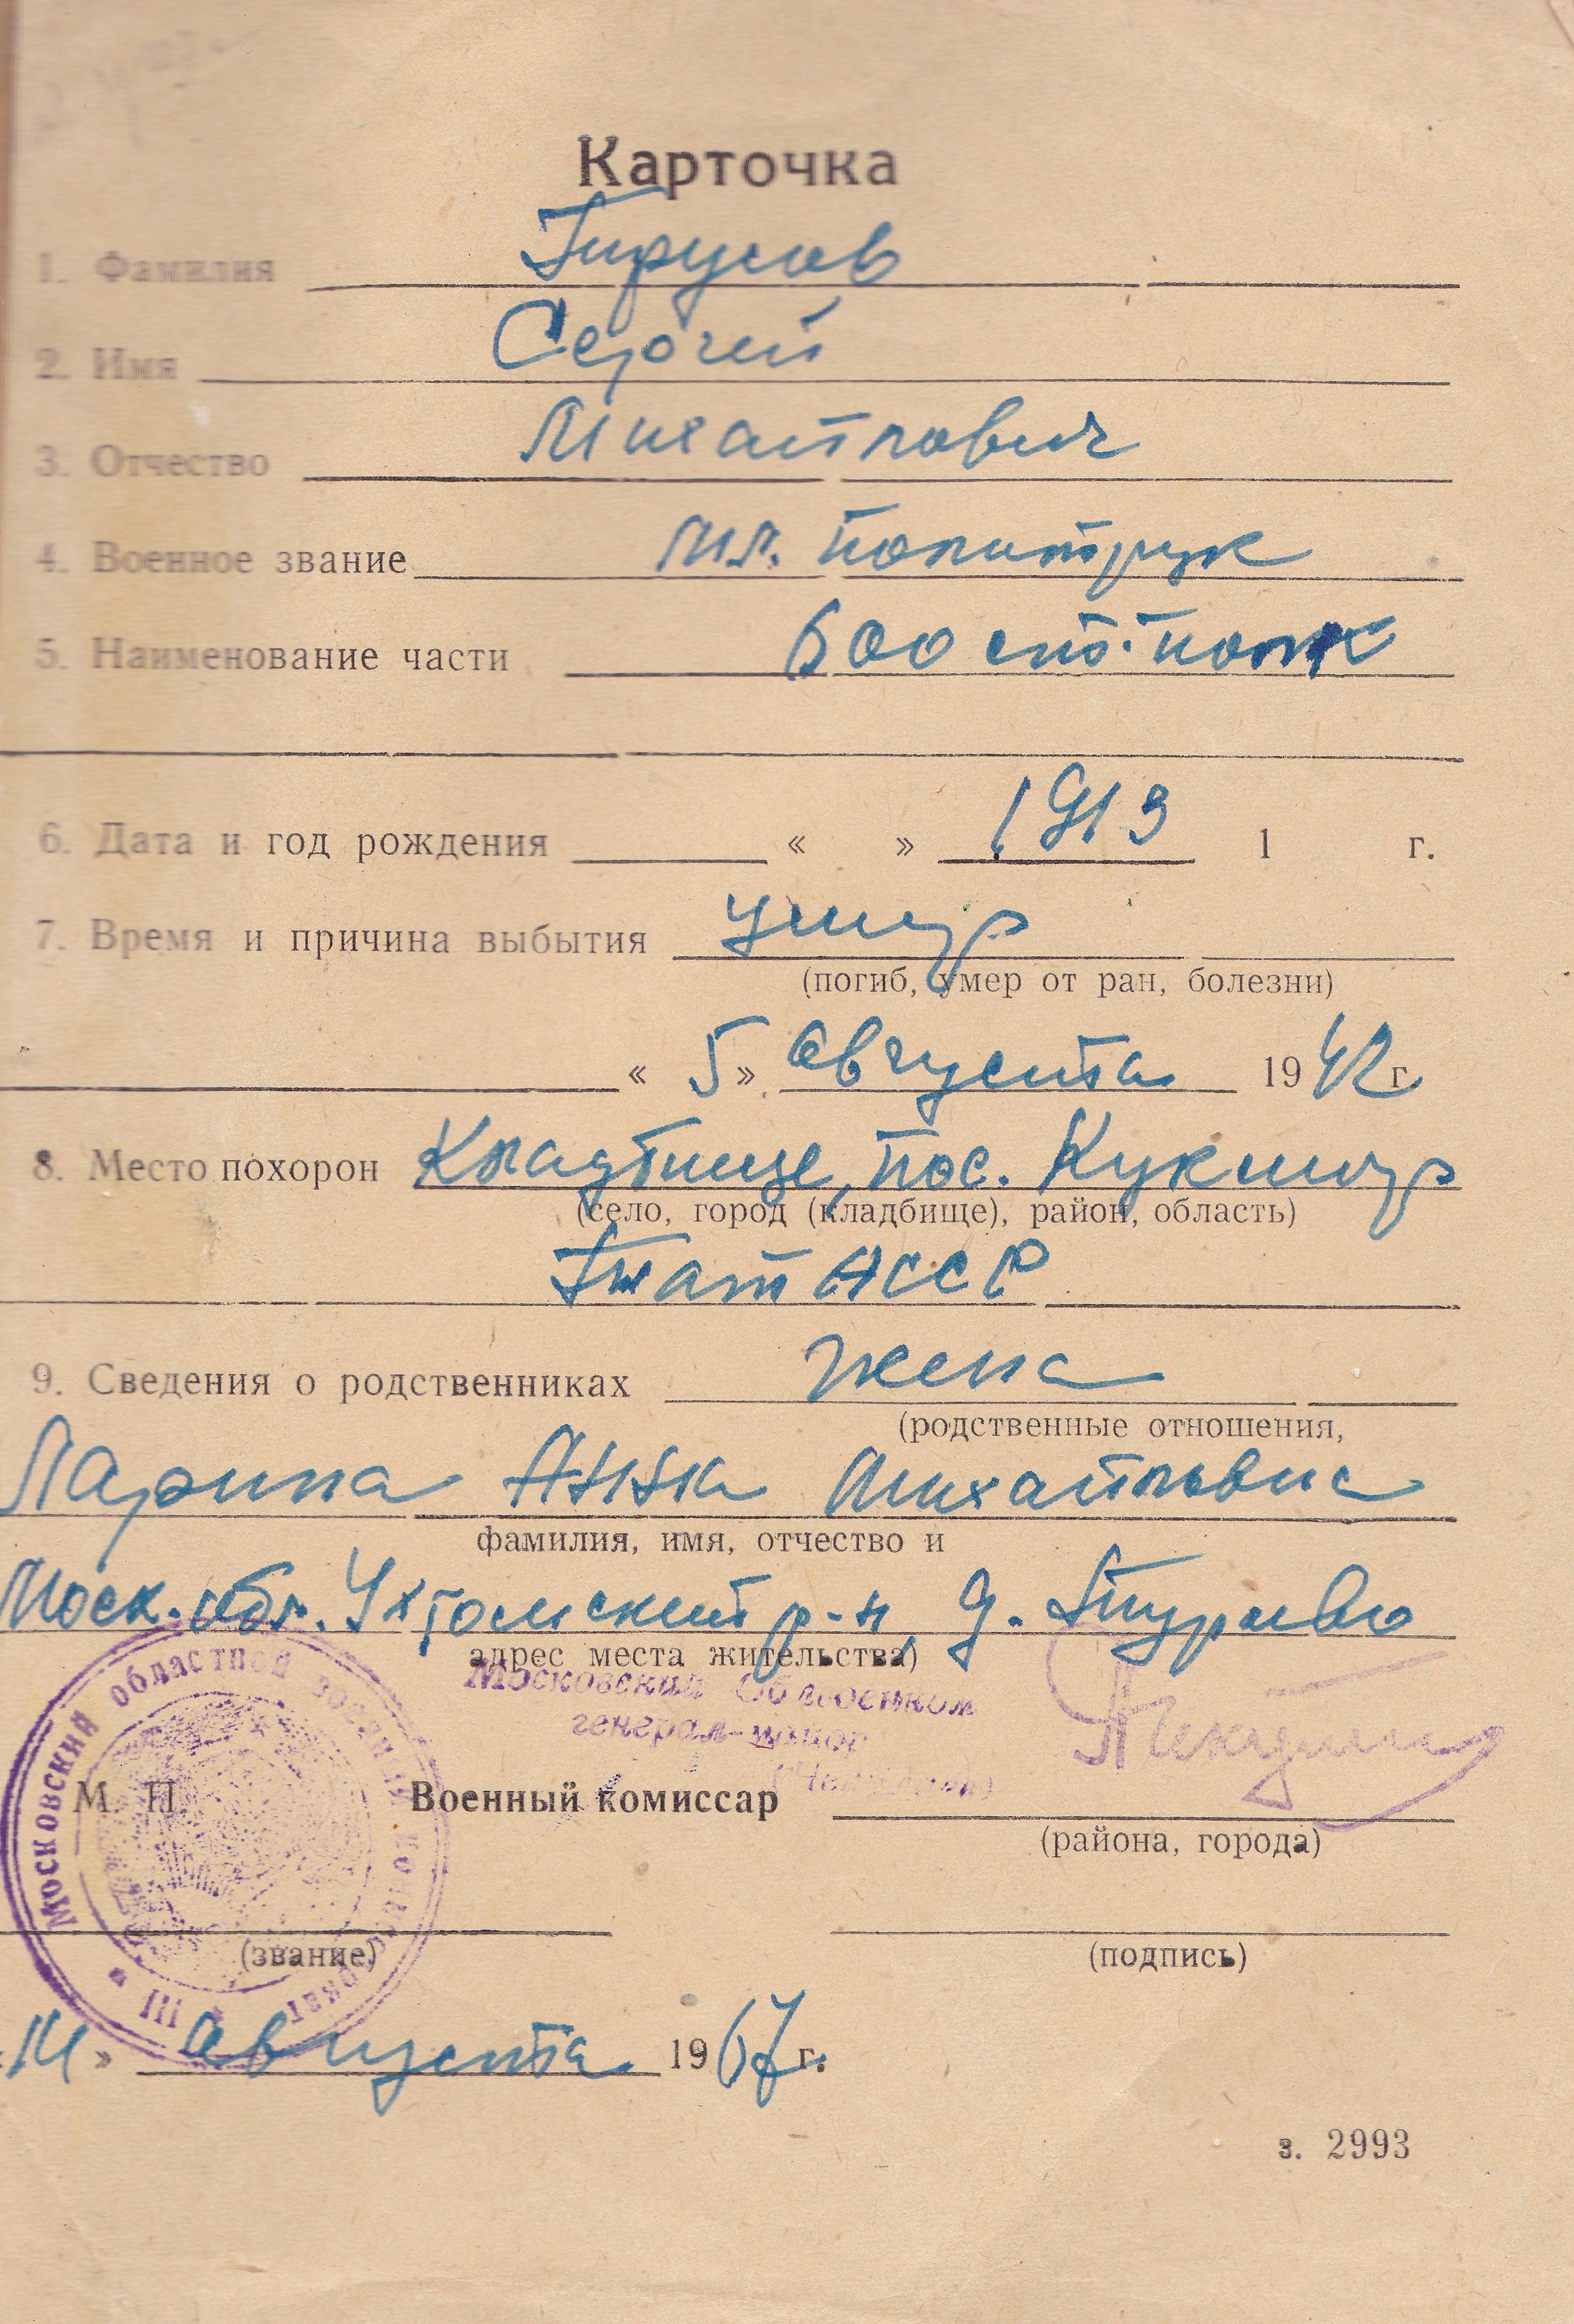 Карточка
1. Фамилия Гирусов
2. Имя Сергей
3. Отчество Михайлович
4. Военное звание мл. политрук
5. Наименование части 600 стр. полк
6. Дата и год рождения « » 1913 1 г.
7. Время и причина выбытия умер
(погиб, умер от ран, болезни)
« 5 » августа 1942 г.
8. Место похорон Кладбище, пос. Кукмор
(село, город (кладбище), район, область)
Тат АССР
9. Сведения о родственниках жена
(родственные отношения,
Ларина Анна Михайловна
фамилия, имя, отчество и
Моск. обл. Ухтомский р-н, д.
адрес места жительства)
Московский Облвоенком
генерал-майор
М. П. Военный комиссар
(района, города)
(звание) (подпись)
Московский областной военный комиссариат III
« 14 » августа 1967 г.
з. 2993